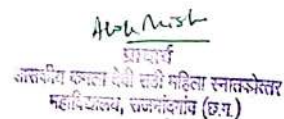 Alok Mish
प्राचार्य
शासकीय कमला देवी राठी महिला स्नातकोत्तर
महाविद्यालय, राजनांदगांव (छ.ग.)